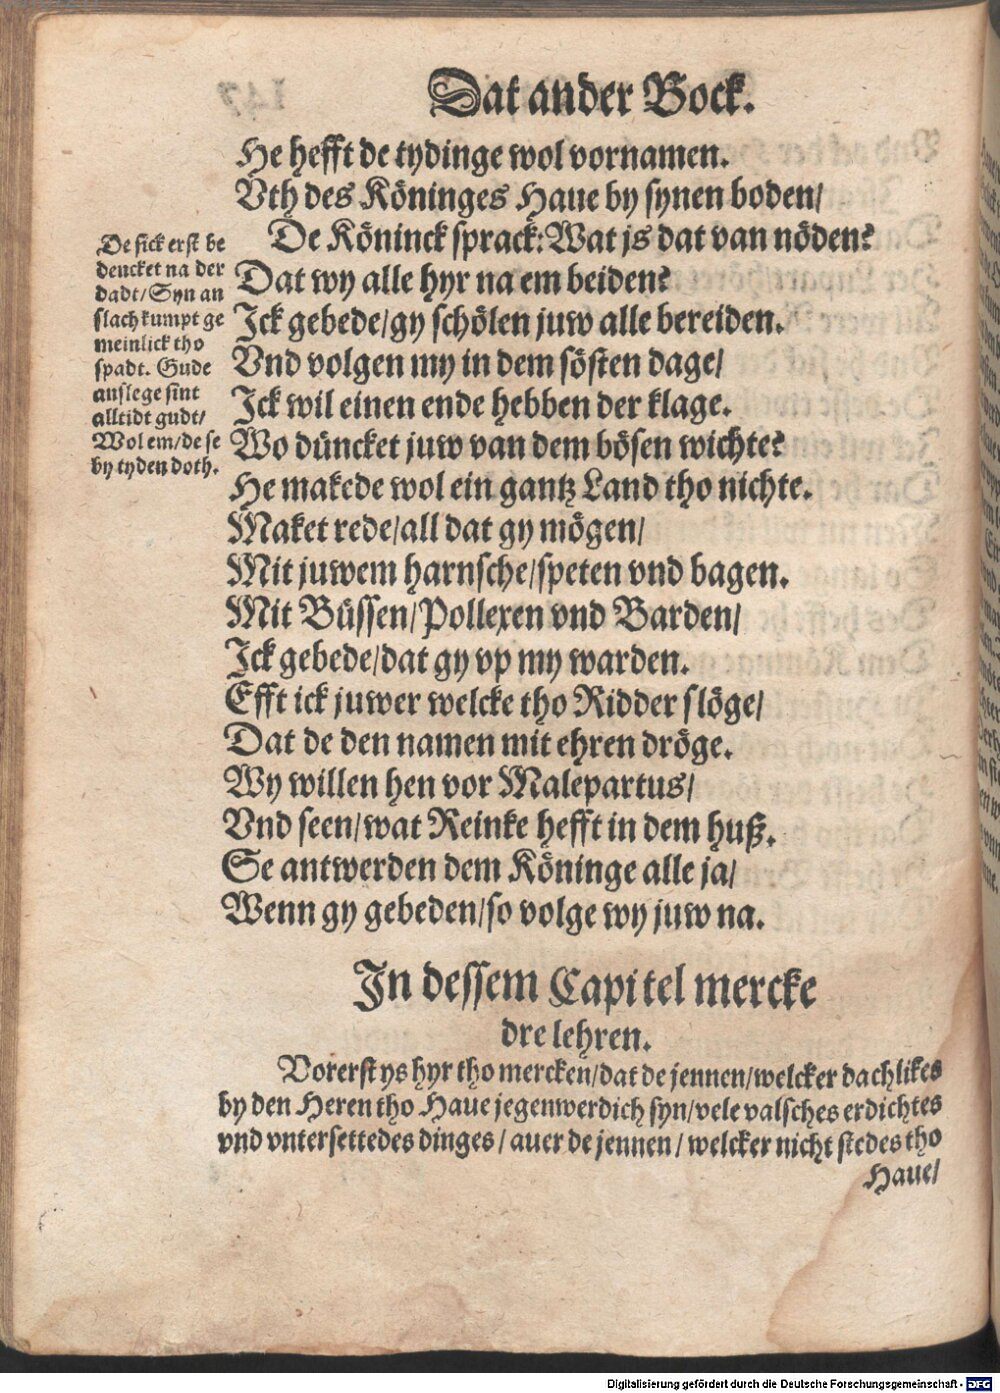 Dat ander Bock.
He hefft de tydinge wol vornamen.
Vth des Köninges Haue by synen boden/
De Köninck sprack: Wat js dat van nöden?
Dat wy alle hyr na em beiden?
Jck gebede/gy schölen juw alle bereiden.
Vnd volgen my in dem sösten dage/
Jck wil einen ende hebben der klage.
Wo düncket juw van dem bösen wichte?
He makede wol ein gantz Land tho nichte.
Maket rede/all dat gy mögen/
Mit juwem harnsche/speten vnd bagen.
Mit Büssen/Pollexen vnd Barden/
Jck gebede/dat gy vp my warden.
Efft ick juwer welcke tho Ridder slöge/
Dat de den namen mit ehren dröge.
Wy willen hen vor Malepartus/
Vnd seen/wat Reinke hefft in dem huß.
Se antwerden dem Köninge alle ja/
Wenn gy gebeden/so volge wy juw na.
De sick erst be
dencket na der
dadt/Syn an
slach kumpt ge
meinlick tho
spadt. Gude
anslege sint
alltidt gudt/
Wol em/de se
by tyden doth.
Jn dessem Capitel mercke
dre lehren.
Vorerst ys hyr tho mercken/dat de jennen/welcker dachlikes
by den Heren tho Haue jegenwerdich syn/vele valsches erdichtes
vnd vntersettedes dinges/auer de jennen/welcker nicht stedes tho
Haue/
Digitalisierung gefördert durch die Deutsche Forschungsgemeinschaft - DFG